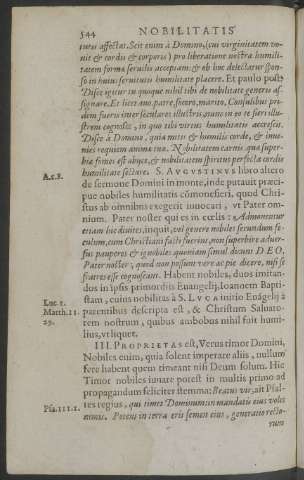 544 NOBILITATIS
turus affectat. Scit enim à Domino, (cui virginitatem vo-
uit & cordis & corporis) pro liberatione nostra humili-
tatem formæ seruilis acceptam: & ob hoc delectatur spon-
so in huius seruitutis humilitate placere. Et paulo post:
Disce igitur tu quoque nihil tibi de nobilitate generis as-
signare. Et licet auo patre, socero, marito, Consulibus pri-
dem fueris inter seculares illustris, nunc in eo te fieri illu-
strem cognosce, in quo tibi virtus humilitatis accessit.
Disce à Domino, quia mitis & humilis corde, & inue-
nies requiem animæ tuæ. Nobilitatem carnis, qua super-
biæ fomes est abijce, & nobilitatem spiritus perfecta cordis
humilitate sectare. S. AVGVSTINVS libro altero
A.c.8.
de sermone Domini in monte, inde putauit præci-
pue nobiles humilitatis cōmonefieri, quod Chri-
stus ab omnibus exegerit inuocari, vt Pater om-
nium. Pater noster qui es in cœlis: Admonentur
etiam hic diuites, inquit, vel genere nobiles secundum se-
culum, cum Christiani facti fuerint, non superbire aduer-
sus pauperes & ignobiles: quoniam simul dicunt DEO,
Pater noster, quod non possunt vere ac pie dicere, nisi se
fratres esse cognoscant. Habent nobiles, duos imitan-
dos in ipsis primordiis Euangelij. Ioannem Bapti-
stam, cuius nobilitas à S. LVCA initio Euāgelij à
Luc. 1.
Matth. 11.
29.
parentibus descripta est, & Christum Saluato-
rem nostrum, quibus ambobus nihil fuit humi-
lius, vt liquet.
III. PROPRIETAS est, Verus timor Domini,
Nobiles enim, quia solent imperare aliis, nullum
fere habent quem timeant nisi Deum solum. Hic
Timor nobiles iuuare potest in multis primo ad
propagandum feliciter stemma: Beatus vir, ait Psal-
Psa. 111.1.
tes regius, qui timet Dominum: in mandatis eius volet
nimis. Potens in terra erit semen eius, generatio recto-
rum